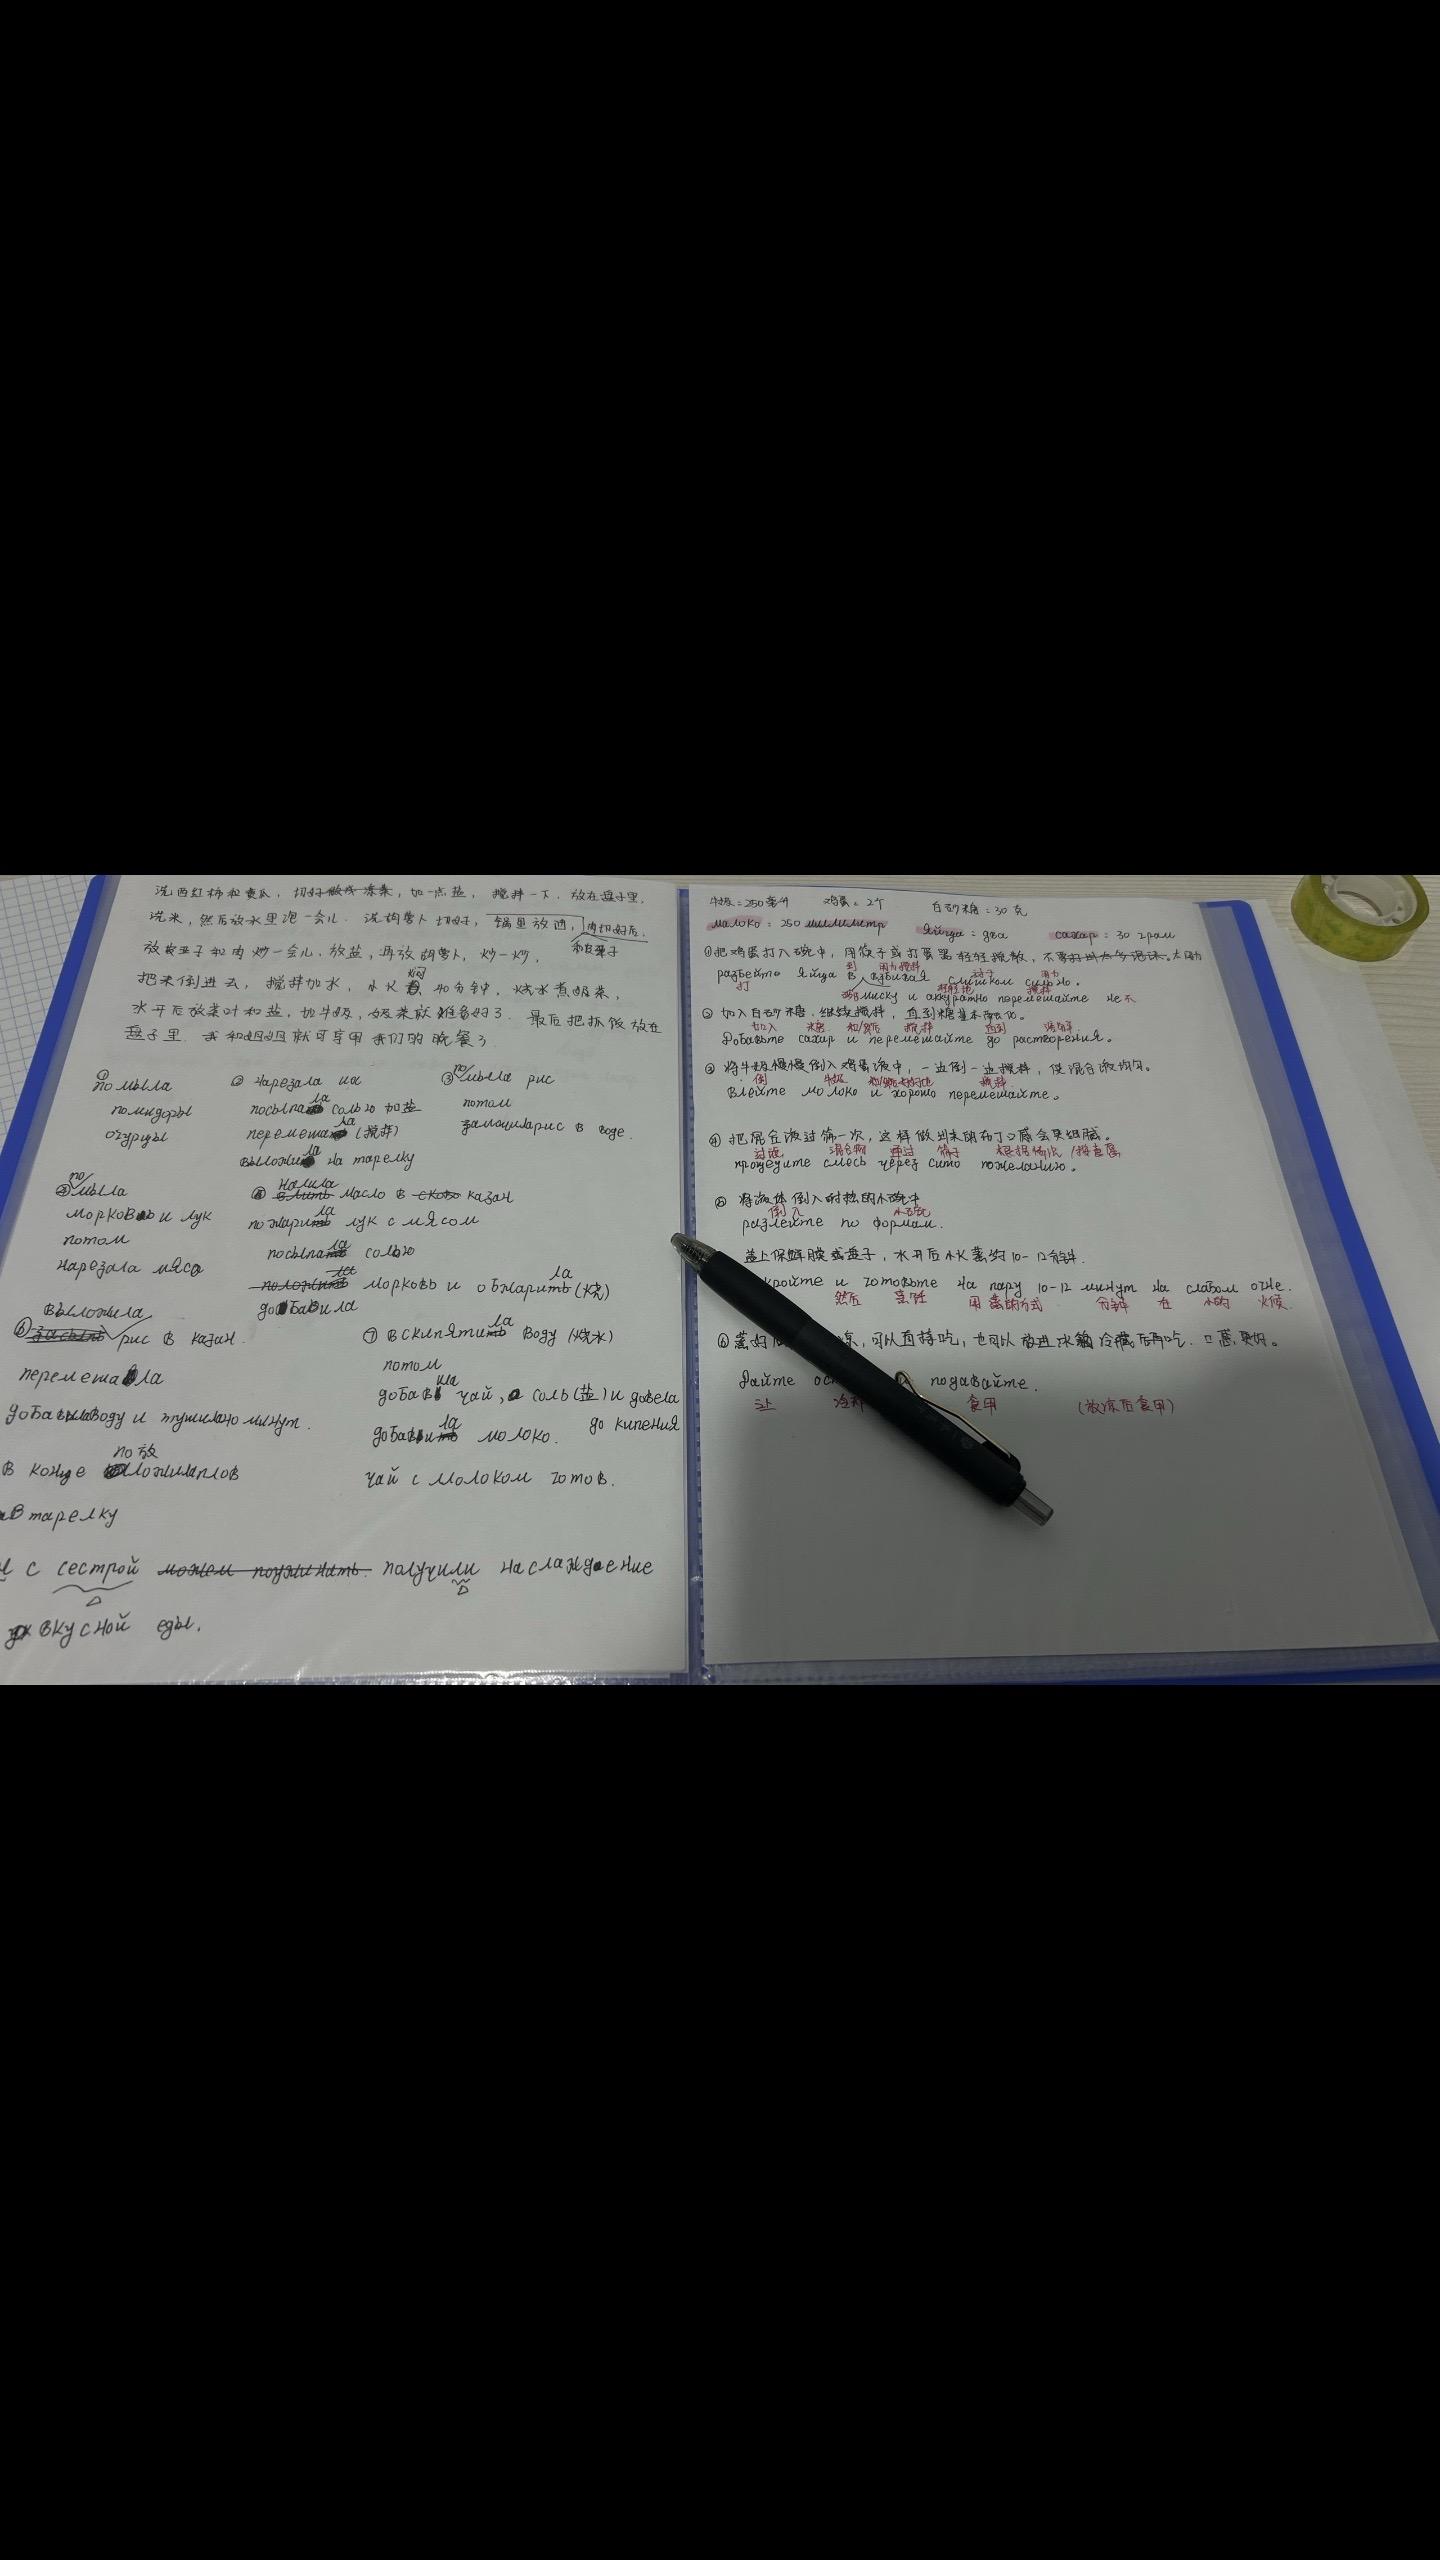 洗西红柿和黄瓜，切好做成凉菜，加一点盐，搅拌一下，放在盘子里.
洗米，然后放水里泡一会儿. 洗胡萝卜切好，锅里放油，肉切好后.
放皮芽子和肉炒一会儿. 放盐，再放胡萝卜，炒一炒， 和皮芽子
把米倒进去，搅拌加水，小火焖40分钟，烧水煮奶茶，
水开后放茶叶和盐，加牛奶，奶茶就准备好了. 最后把抓饭放在
盘子里. 我和姐姐就可享用我们的晚餐了
① помыла
помидоры
огурцы
② нарезала их
посыпала солью 加盐
перемешала (搅拌)
выложила на тарелку
③ помыла рис
потом
замочила рис в воде.
④ помыла
морковь и лук
потом
нарезала мясо
⑤ налила влить масло в казан
пожарила лук с мясом
посыпала солью
положила морковь и обжарила (烧)
добавила
⑥ выложила рис в казан.
перемешала
добавила воду и тушила 40 минут.
в конце положила плов 放
в тарелку
⑦ вскипятила воду (烧水)
потом
добавила чай, соль (盐) и довела
до кипения
добавила молоко.
чай с молоком готов.
с сестрой можем поужинать. получили наслаждение
вкусной еды.
牛奶=250毫升 鸡蛋=2个 白砂糖=30克
молоко = 250 миллилитр яйца = два сахар = 30 грам
①把鸡蛋打入碗中，用筷子或打蛋器轻轻搅散，不要打出太多泡沫. 太用力
到 用力搅拌 过于 用力
разбейте яйца в взбивая слишком сильно.
打 миску и аккуратно перемешайте не 不
② 加入白砂糖. 继续搅拌，直到糖基本溶化。
加入 米糖 和/然后 搅拌 直到 溶解
Добавьте сахар и перемешайте до растворения.
③ 将牛奶慢慢倒入鸡蛋液中，一边倒一边搅拌，使混合液均匀。
倒 牛奶 搅拌
влейте молоко и хорошо перемешайте.
④ 把混合液过筛一次，这样做出来的布丁口感会更细腻。
过滤 混合物 通过 筛子
процедите смесь через сито по желанию.
⑤ 将液体倒入耐热的小碗中
倒入 小碗
разлейте по формам.
盖上保鲜膜或盘子，水开后小火蒸约10-12分钟.
кройте и готовьте на пару 10-12 минут на слабом огне.
然后 烹饪 用蒸的方式 分钟 在 小的 火候.
⑥ 蒸好 可以直接吃，也可以放进冰箱冷藏后再吃. 口感更好。
дайте подавайте.
让 食用 (放凉后食用)